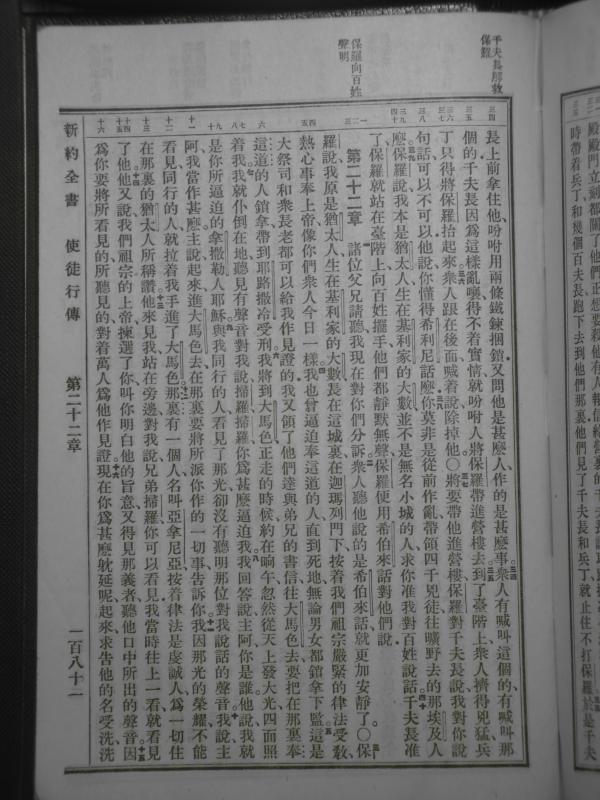 時帶着兵丁和幾個百夫長跑下去到他們那裏他們見了千夫長和兵丁就止住不打保羅於是千夫
千夫長解救
保羅
保羅向百姓
聲明
長上前拿住他吩咐用兩條鐵鍊捆鎖又問他是甚麼人作的是甚麼事衆人有喊叫這個的有喊叫那
個的千夫長因爲這樣亂嚷得不着實情就吩咐人將保羅帶進營樓去到了臺階上衆人擠得兇猛兵
丁只得將保羅抬起來衆人跟在後面喊着說除掉他〇將要帶他進營樓保羅對千夫長說我對你說
句話可以不可以他說你懂得希利尼話麼你莫非是從前作亂帶領四千兇徒往曠野去的那埃及人
麼保羅說我本是猶太人生在基利家的大數並不是無名小城的人求你准我對百姓說話千夫長准
了保羅就站在臺階上向百姓擺手他們都靜默無聲保羅便用希伯來話對他們說
第二十二章 諸位父兄請聽我現在對你們分訴衆人聽他說的是希伯來話就更加安靜了〇保
羅說我原是猶太人生在基利家的大數長在這城裏在迦瑪列門下按着我們祖宗嚴緊的律法受教
熱心事奉上帝像你們衆人今日一樣我也曾逼迫奉這道的人直到死地無論男女都鎖拿下監這是
大祭司和衆長老都可以給我作見證的我又領了他們達與弟兄的書信往大馬色去要把在那裏奉
這道的人鎖拿帶到耶路撒冷受刑我將到大馬色正走的時候約在晌午忽然從天上發大光四面照
着我我就仆倒在地聽見有聲音對我說掃羅掃羅你爲甚麼逼迫我我回答說主阿你是誰他說我就
是你所逼迫的拿撒勒人耶穌與我同行的人看見了那光卻沒有聽明那位對我說話的聲音我說主
阿我當作甚麼主說起來進大馬色去在那裏要將所派你作的一切事告訴你我因那光的榮耀不能
看見同行的人就拉着我手進了大馬色那裏有一個人名叫亞拿尼亞按着律法是虔誠人爲一切住
在那裏的猶太人所稱讚他來見我站在旁邊對我說兄弟掃羅你可以看見我當時往上一看就看見
了他他又說我們祖宗的上帝揀選了你叫你明白他的旨意又得見那義者聽他口中所出的聲音因
爲你要將所看見的所聽見的對着萬人爲他作見證現在你爲甚麼躭延呢起來求告他的名受洗洗
新約全書 使徒行傳 第二十二章 一百八十一